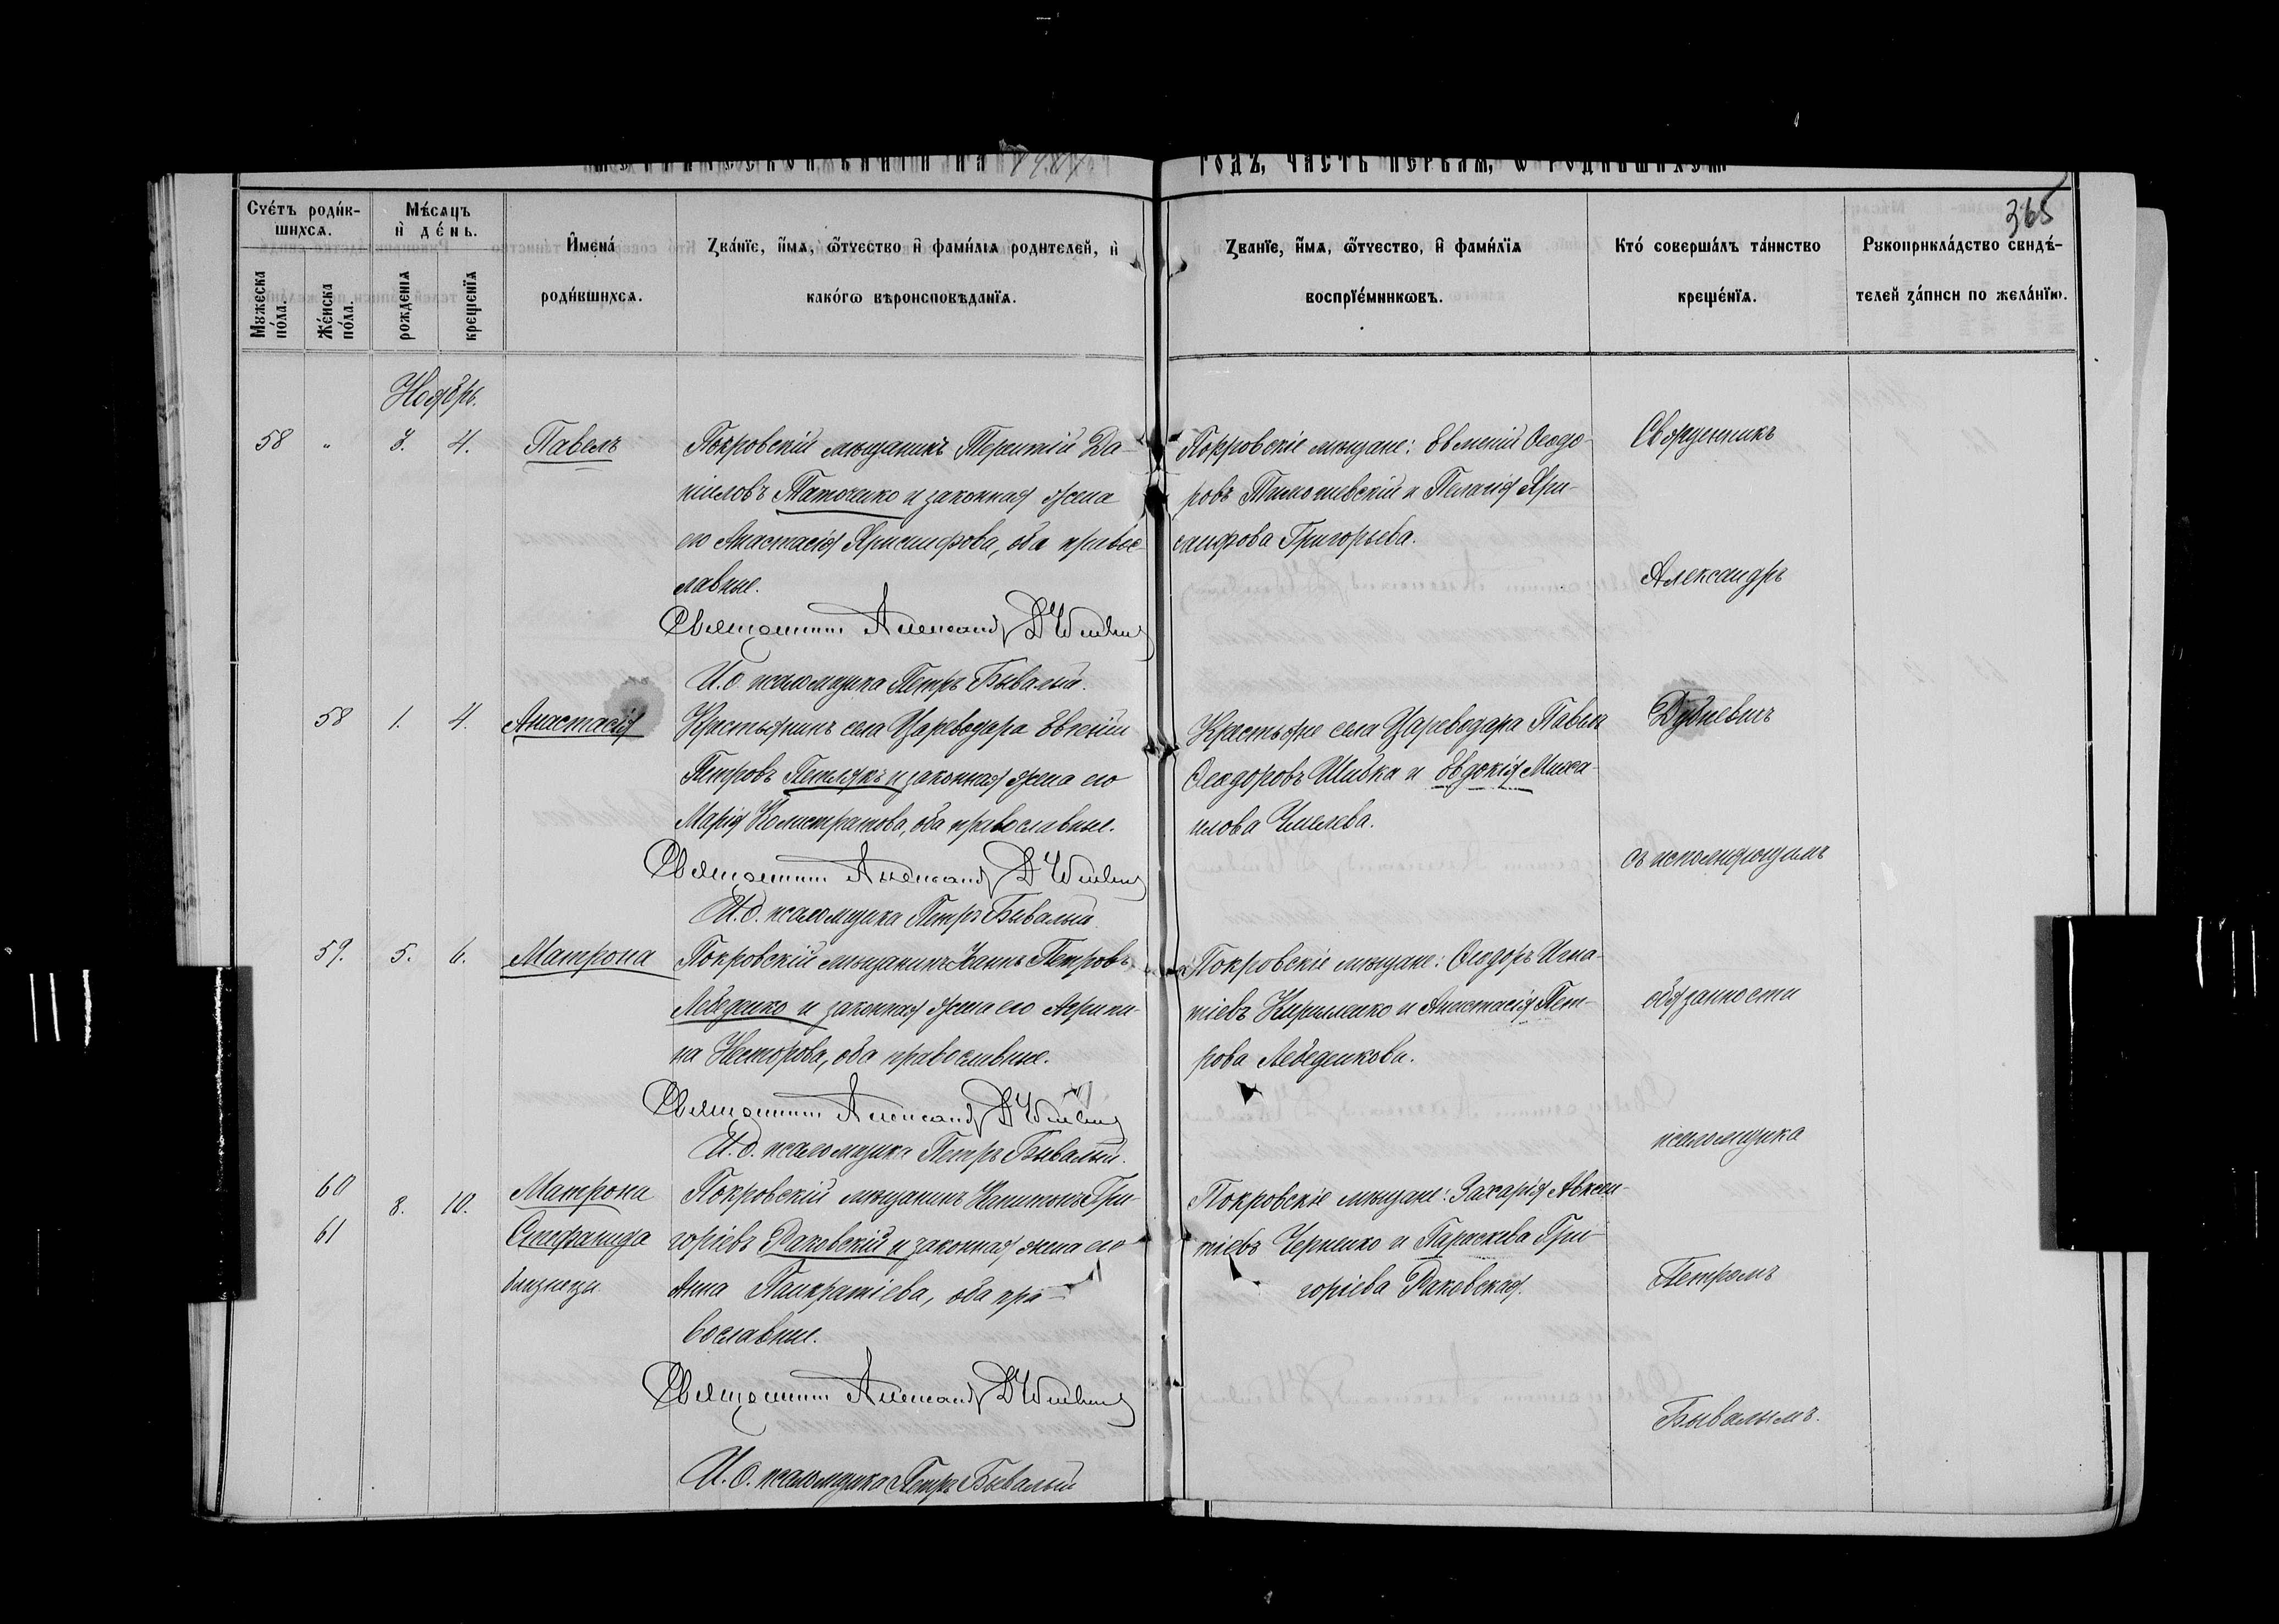 365
годъ, часть первая, ѡ родившихся
Счетъ родившихся.
Мужеска пола.
Женска пола.
Мѣсяцъ и день.
рожденія
крещенія
Имена родившихся.
Званіе, имя, ѿчество и фамилія родителей, и какогѡ вѣроисповѣданія.
Званіе, имя, ѿчество, и фамилія воспріемниковъ.
Кто совершалъ таинство крещенія.
Рукоприкладство свидѣтелей записи по желанію.
Ноябрь.
58 " 3. 4. Павелъ
Покровскій мѣщанинъ Терентій Да-
ніиловъ и законная жена
его Анастасія Ярисанфова, оба правос-
лавные.
Священникъ Александръ
И. о. псаломщика Петръ Бывалый.
Покровскіе мѣщане: Евменій Ѳеодо-
ровъ и Пелагія Хри-
санфова Григорьева.
58 1. 4. Анастасія
Крестьянинъ села Цареводара Евгеній
Петровъ и законная жена его
Марія Калистратова, оба православные.
Священникъ Александръ
И. о. псаломщика Петръ Бывалый.
Крестьяне села Цареводара Павелъ
Ѳеодоровъ Шибка и Евдокія Миха-
илова
59. 5. 6. Матрона
Покровскій мѣщанинъ Іоаннъ Петровъ
Лебеденко и законная жена его Агрипи-
на Несторова, оба православные.
Священникъ Александръ
И. о. псаломщика Петръ Бывалый.
Покровскіе мѣщане: Ѳеодоръ Игна-
тіевъ Кириленко и Анастасія Пет-
рова Лебеденкова.
60
61
8. 10.
Матрона
Стефанида
близнецы
Покровскій мѣщанинъ Капитонъ Гри-
горіевъ Раковскій и законная жена его
Анна Панкратіева, оба пра-
вославные.
Священникъ Александръ
И. о. псаломщика Петръ Бывалый
Покровскіе мѣщане: Захарія Авксен-
тіевъ Черненко и Параскева Гри-
горіева Раковская.
Священникъ
Александръ
съ исполняющимъ
обязанности
псаломщика
Петромъ
Бывалымъ.